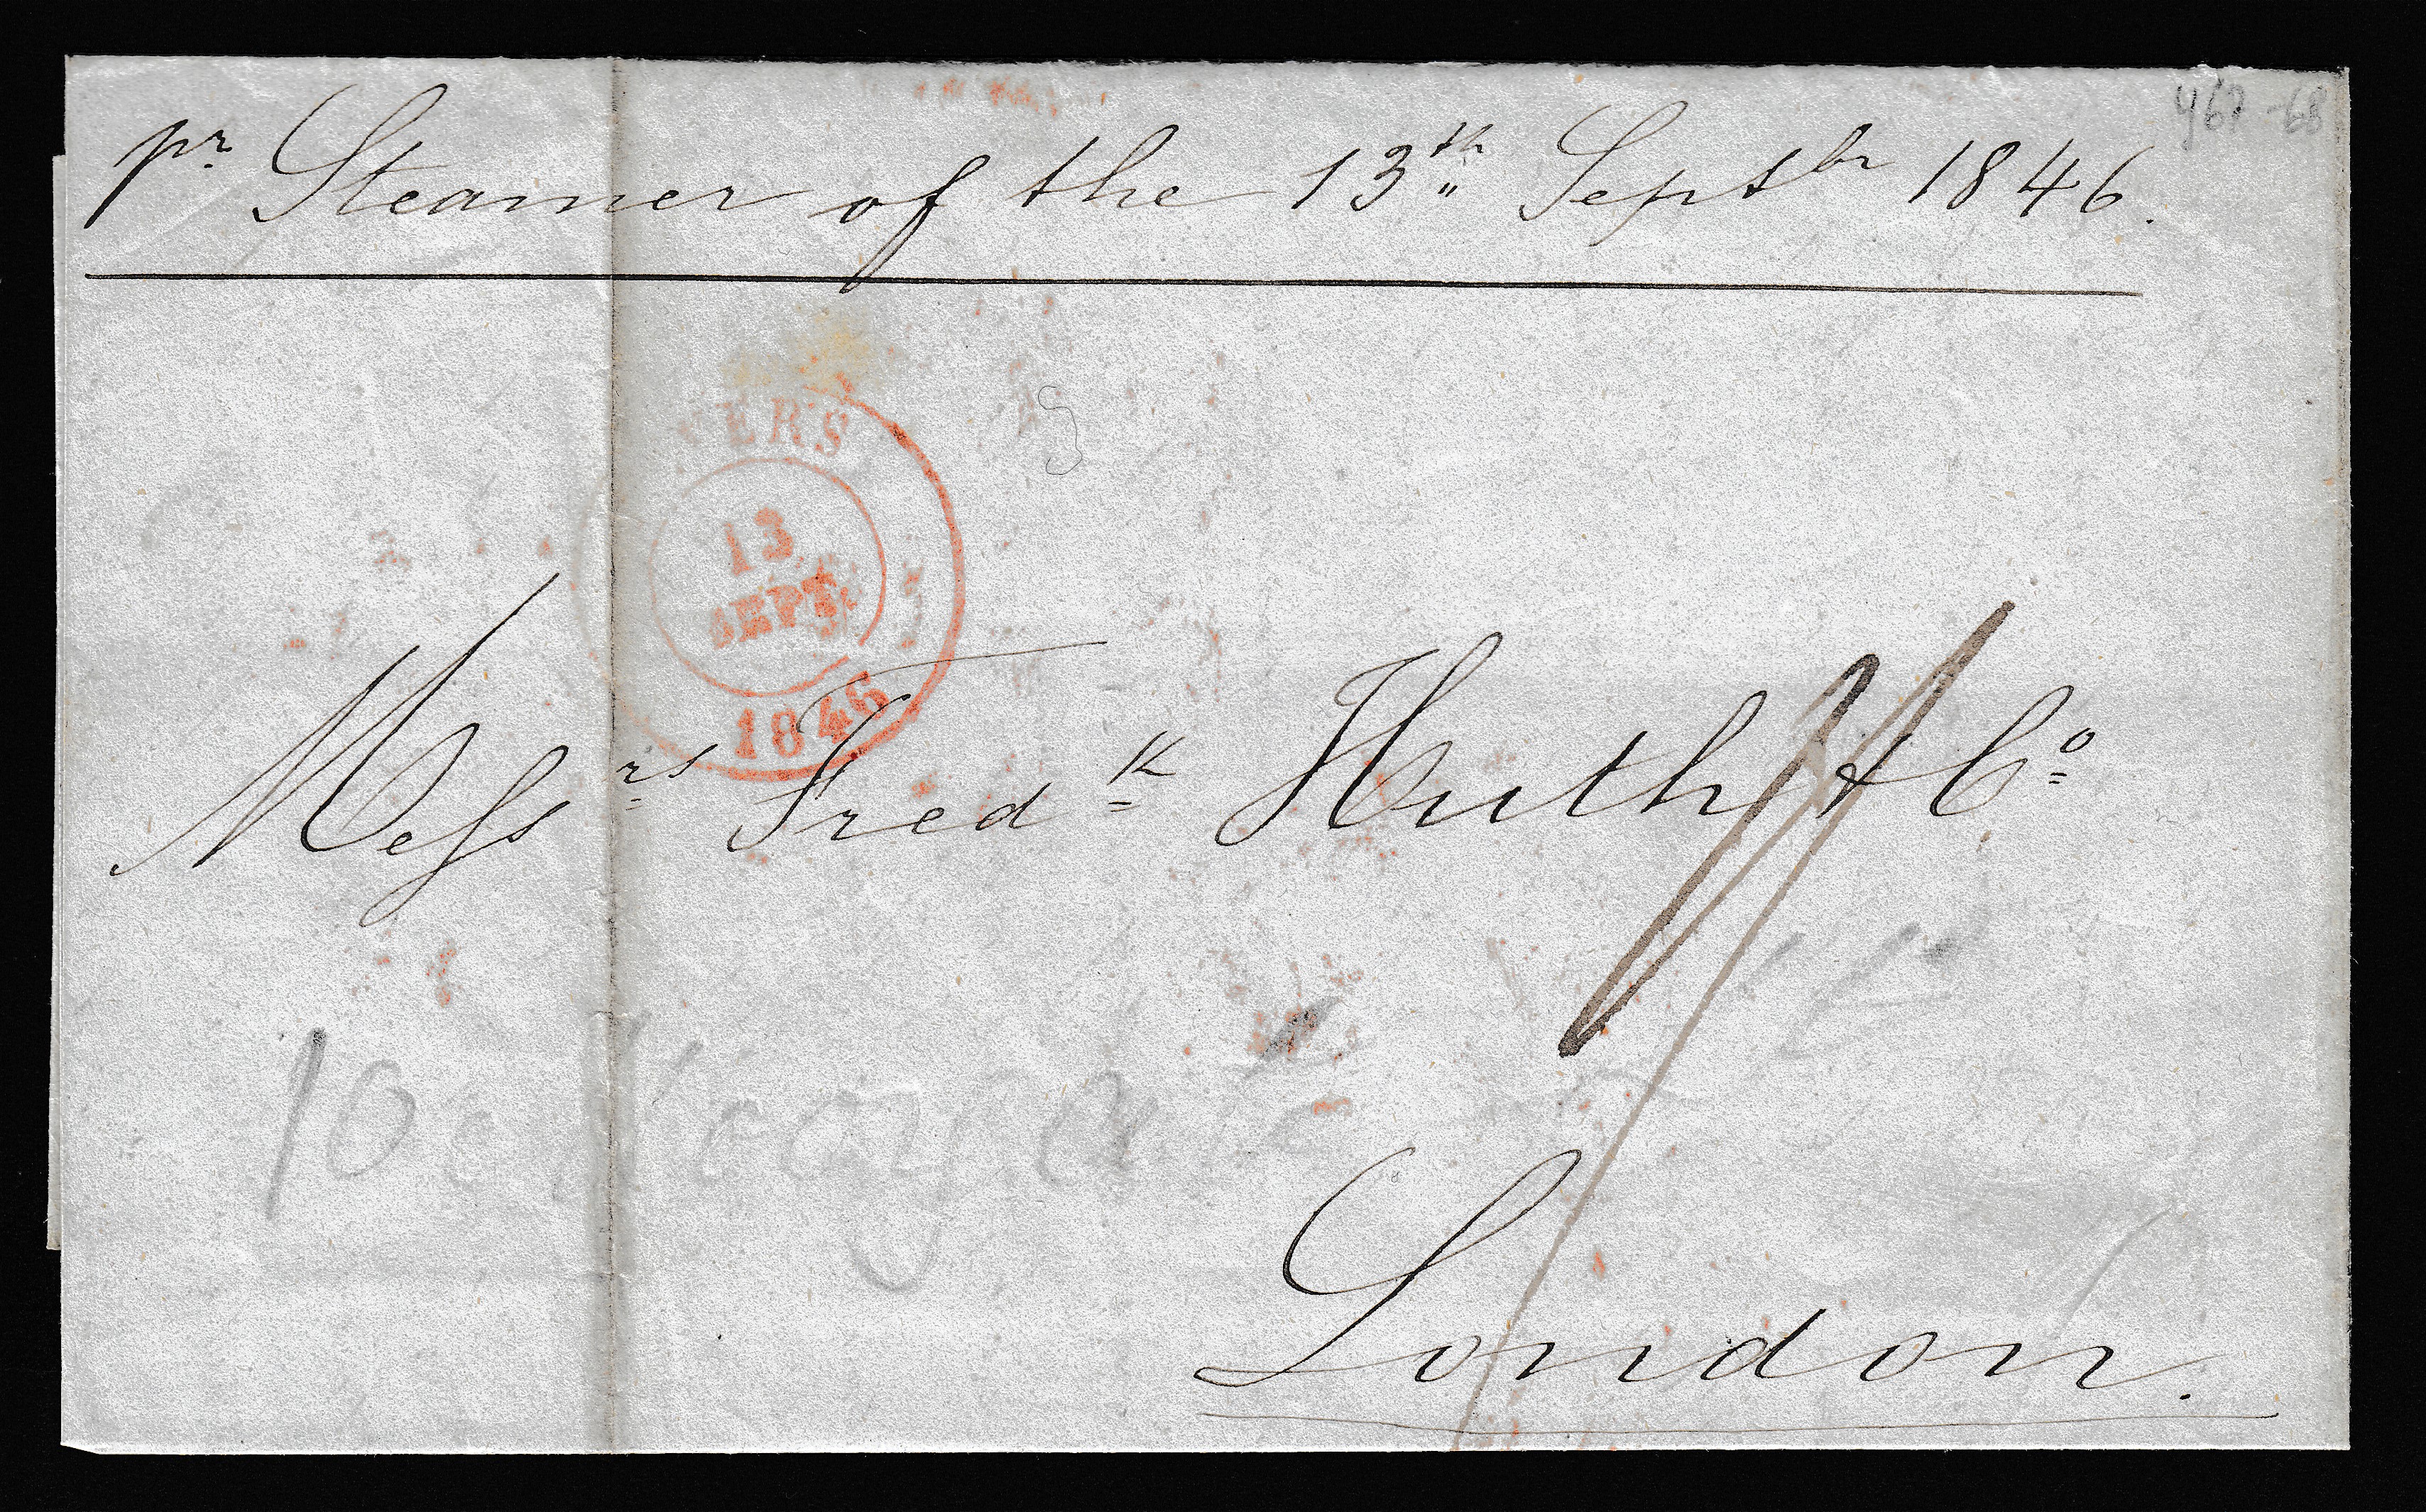 pr Steamer of the 13th Septbr 1846.
ERS
13
SEPT.
1846
Messrs Fredk Huth & Co
London.